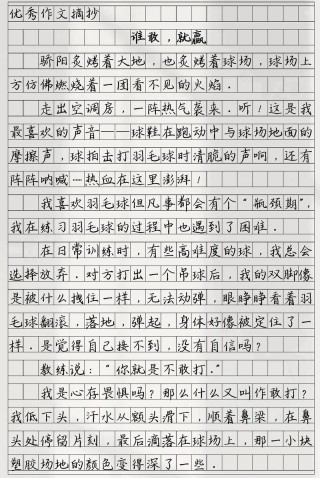 优秀作文摘抄
谁敢，就赢
骄阳炙烤着大地，也炙烤着球场，球场上
方仿佛燃烧着一团看不见的火焰．
走出空调房，一阵热气袭来．听！这是我
最喜欢的声音——球鞋在跑动中与球场地面的
摩擦声，球拍击打羽毛球时清脆的声响，还有
阵阵呐喊…热血在这里澎湃！
我喜欢羽毛球但凡事都会有个“瓶颈期”，
我在练习羽毛球的过程中也遇到了困难．
在日常训练时，有些高难度的球，我总会
选择放弃．对方打出一个吊球后，我的双脚像
是被什么拽住一样，无法动弹，眼睁睁看着羽
毛球翻滚，落地，弹起，身体好像被定住了一
样．是觉得自己接不到，没有自信吗？
教练说：“你就是不敢打．”
我是心存畏惧吗？那么什么又叫作敢打？
我低下头，汗水从额头滑下，顺着鼻梁，在鼻
头处停留片刻，最后滴落在球场上，那一小块
塑胶场地的颜色变得深了一些．